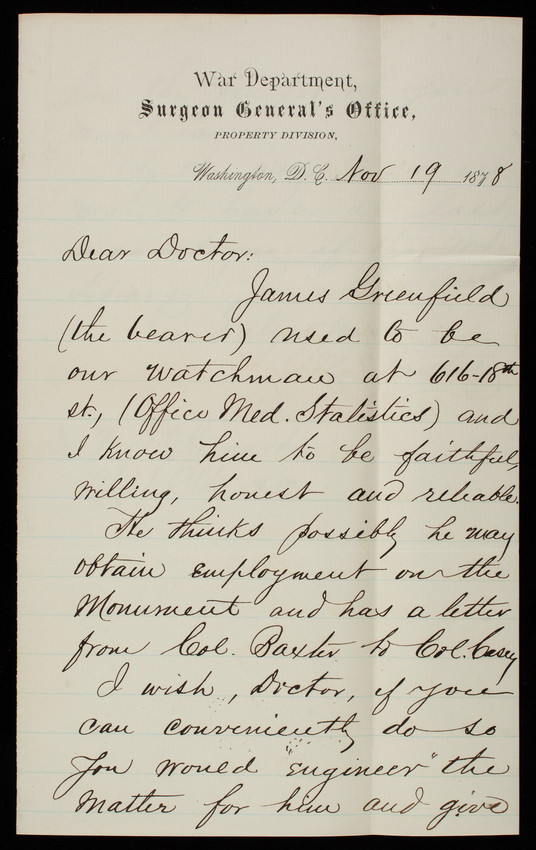 War Department,
Surgeon General's Office,
PROPERTY DIVISION,
Washington, D. C. Nov 19 1878
Dear Doctor:
James Greenfield
(the bearer) used to be
our watchman at 616-18th
st., (Office Med. Statistics) and
I know him to be faithful,
willing, honest and reliable.
He thinks possibly he may
obtain employment on the
Monument and has a letter
from Col. Baxter to Col. Casey
I wish, Doctor, if you
can conveniently do so
you would "engineer" the
matter for him and give